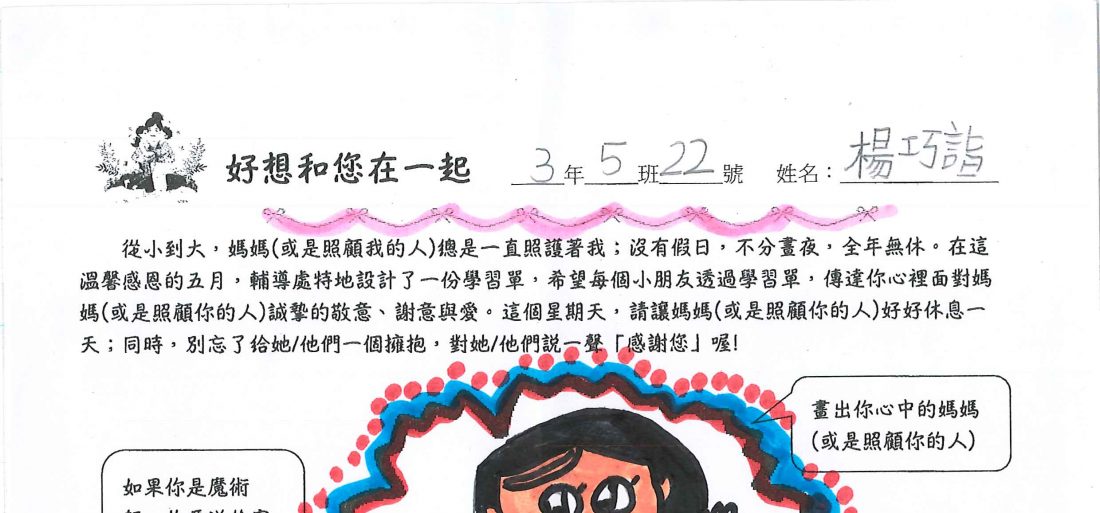 好想和您在一起 3年5班22號 姓名：楊巧詣
從小到大，媽媽(或是照顧我的人)總是一直照護著我；沒有假日，不分晝夜，全年無休。在這
溫馨感恩的五月，輔導處特地設計了一份學習單，希望每個小朋友透過學習單，傳達你心裡面對媽
媽(或是照顧你的人)誠摯的敬意、謝意與愛。這個星期天，請讓媽媽(或是照顧你的人)好好休息一
天；同時，別忘了給她/他們一個擁抱，對她/他們說一聲「感謝您」喔!
畫出你心中的媽媽
(或是照顧你的人)
如果你是魔術